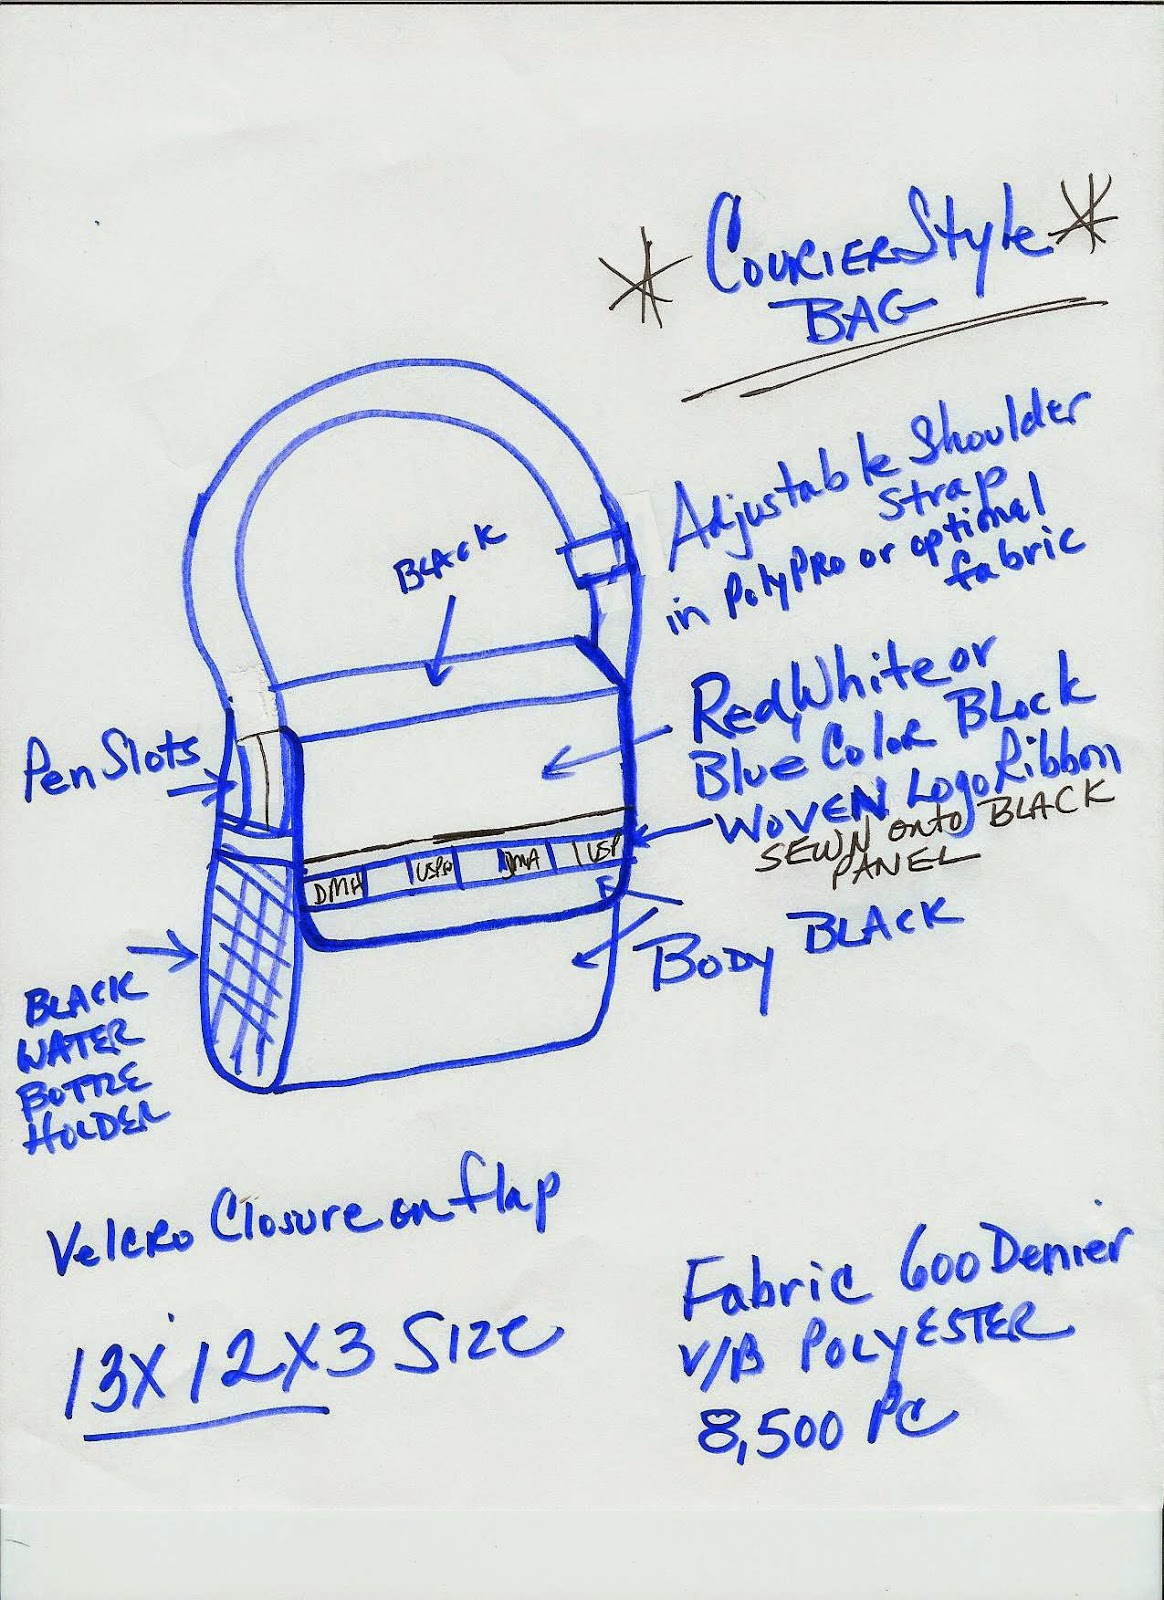 * Courier Style *
BAG
Adjustable Shoulder
Strap
in PolyPro or optional
fabric
BLACK
Red, White or
Blue Color Block
Woven Logo Ribbon
SEWN onto BLACK
PANEL
Pen Slots
DMA USPS DMA USP
Body BLACK
BLACK
WATER
BOTTLE
HOLDER
Velcro Closure on flap
Fabric 600 Denier
V/B POLYESTER
8,500 PC
13 X 12 X 3 SIZE